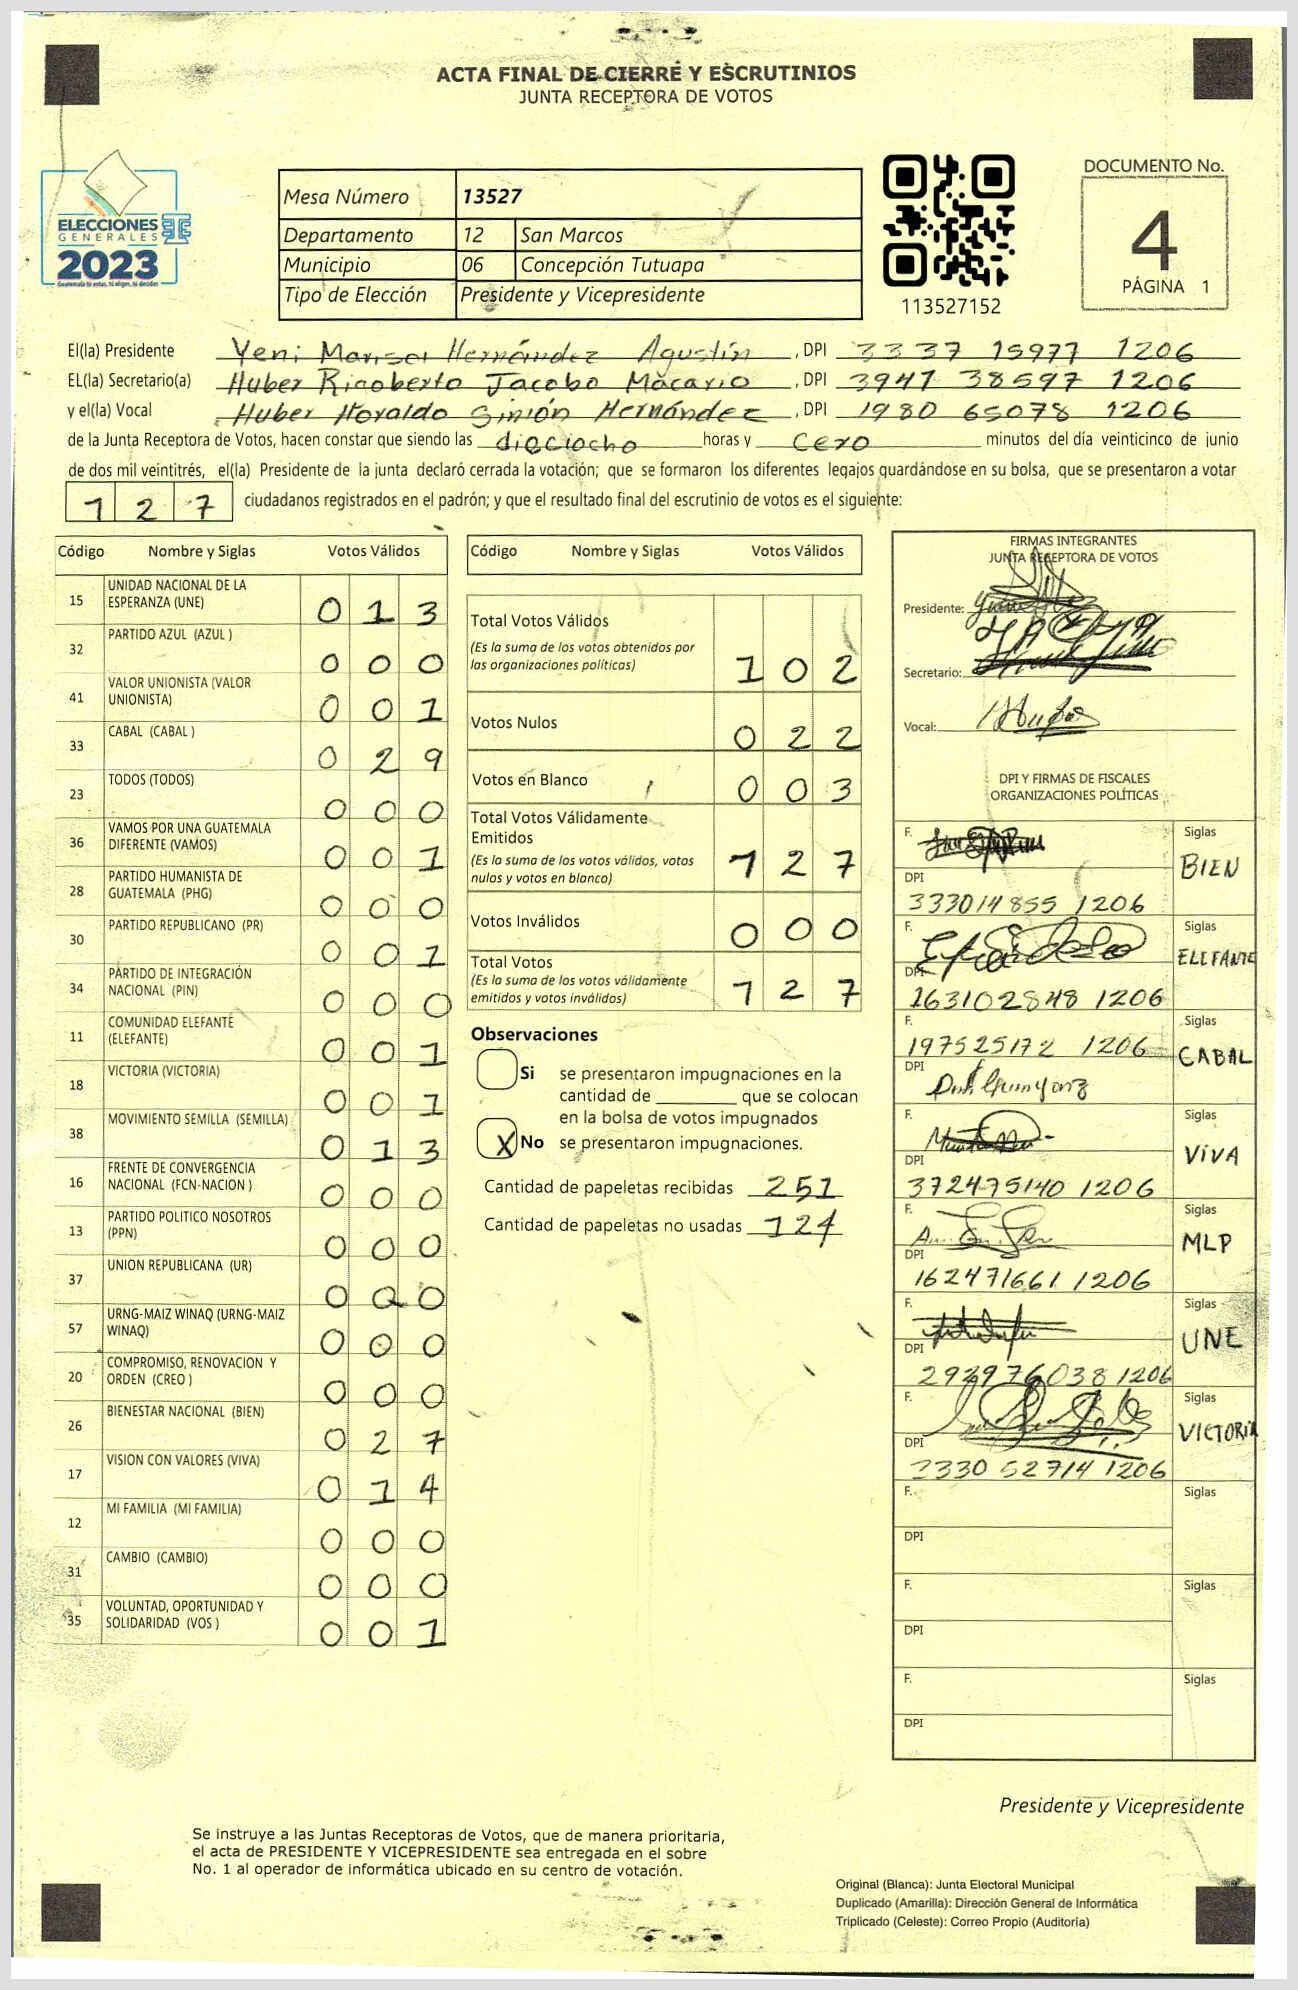 ACTA FINAL DE CIERRE Y ESCRUTINIOS
JUNTA RECEPTORA DE VOTOS
ELECCIONES
GENERALES
2023
Mesa Número 13527
Departamento 12 San Marcos
Municipio 06 Concepción Tutuapa
Tipo de Elección Presidente y Vicepresidente
113527152
DOCUMENTO No.
4
PÁGINA 1
El(la) Presidente Yeni Marisol Hernández Agustín , DPI 3337 15977 1206
EL(la) Secretario(a) Huber Rigoberto Jacobo Macario , DPI 3947 38597 1206
y el(la) Vocal Huber Horaldo Simión Hernández , DPI 1980 65078 1206
de la Junta Receptora de Votos, hacen constar que siendo las dieciocho horas y cero minutos del día veinticinco de junio
de dos mil veintitrés, el(la) Presidente de la junta declaró cerrada la votación; que se formaron los diferentes legajos guardándose en su bolsa, que se presentaron a votar
127 ciudadanos registrados en el padrón; y que el resultado final del escrutinio de votos es el siguiente:
Código Nombre y Siglas Votos Válidos
15 UNIDAD NACIONAL DE LA ESPERANZA (UNE) 013
32 PARTIDO AZUL (AZUL ) 000
41 VALOR UNIONISTA (VALOR UNIONISTA) 001
33 CABAL (CABAL ) 029
23 TODOS (TODOS) 000
36 VAMOS POR UNA GUATEMALA DIFERENTE (VAMOS) 001
28 PARTIDO HUMANISTA DE GUATEMALA (PHG) 000
30 PARTIDO REPUBLICANO (PR) 001
34 PARTIDO DE INTEGRACIÓN NACIONAL (PIN) 000
11 COMUNIDAD ELEFANTE (ELEFANTE) 001
18 VICTORIA (VICTORIA) 001
38 MOVIMIENTO SEMILLA (SEMILLA) 013
16 FRENTE DE CONVERGENCIA NACIONAL (FCN-NACION ) 000
13 PARTIDO POLITICO NOSOTROS (PPN) 000
37 UNION REPUBLICANA (UR) 000
57 URNG-MAIZ WINAQ (URNG-MAIZ WINAQ) 000
20 COMPROMISO, RENOVACION Y ORDEN (CREO ) 000
26 BIENESTAR NACIONAL (BIEN) 027
17 VISION CON VALORES (VIVA) 014
12 MI FAMILIA (MI FAMILIA) 000
31 CAMBIO (CAMBIO) 000
35 VOLUNTAD, OPORTUNIDAD Y SOLIDARIDAD (VOS ) 001
Código Nombre y Siglas Votos Válidos
Total Votos Válidos 102
(Es la suma de los votos obtenidos por
las organizaciones políticas)
Votos Nulos 022
Votos en Blanco 003
Total Votos Válidamente
Emitidos 127
(Es la suma de los votos válidos, votos
nulos y votos en blanco)
Votos Inválidos 000
Total Votos 127
(Es la suma de los votos válidamente
emitidos y votos inválidos)
Observaciones
Si se presentaron impugnaciones en la
cantidad de ________ que se colocan
en la bolsa de votos impugnados
X No se presentaron impugnaciones.
Cantidad de papeletas recibidas 251
Cantidad de papeletas no usadas 124
FIRMAS INTEGRANTES
JUNTA RECEPTORA DE VOTOS
Presidente:
Secretario:
Vocal:
DPI Y FIRMAS DE FISCALES
ORGANIZACIONES POLÍTICAS
F. Siglas
BIEN
DPI
333014855 1206
F. Siglas
ELEFANTE
DPI
163102848 1206
F. Siglas
197525172 1206 CABAL
DPI
F. Siglas
VIVA
DPI
372475140 1206
F. Siglas
MLP
DPI
162471661 1206
F. Siglas
UNE
DPI
292976038 1206
F. Siglas
VICTORIA
DPI
3330 52714 1206
F. Siglas
DPI
F. Siglas
DPI
F. Siglas
DPI
Presidente y Vicepresidente
Se instruye a las Juntas Receptoras de Votos, que de manera prioritaria,
el acta de PRESIDENTE Y VICEPRESIDENTE sea entregada en el sobre
No. 1 al operador de informática ubicado en su centro de votación.
Original (Blanca): Junta Electoral Municipal
Duplicado (Amarilla): Dirección General de Informática
Triplicado (Celeste): Correo Propio (Auditoría)